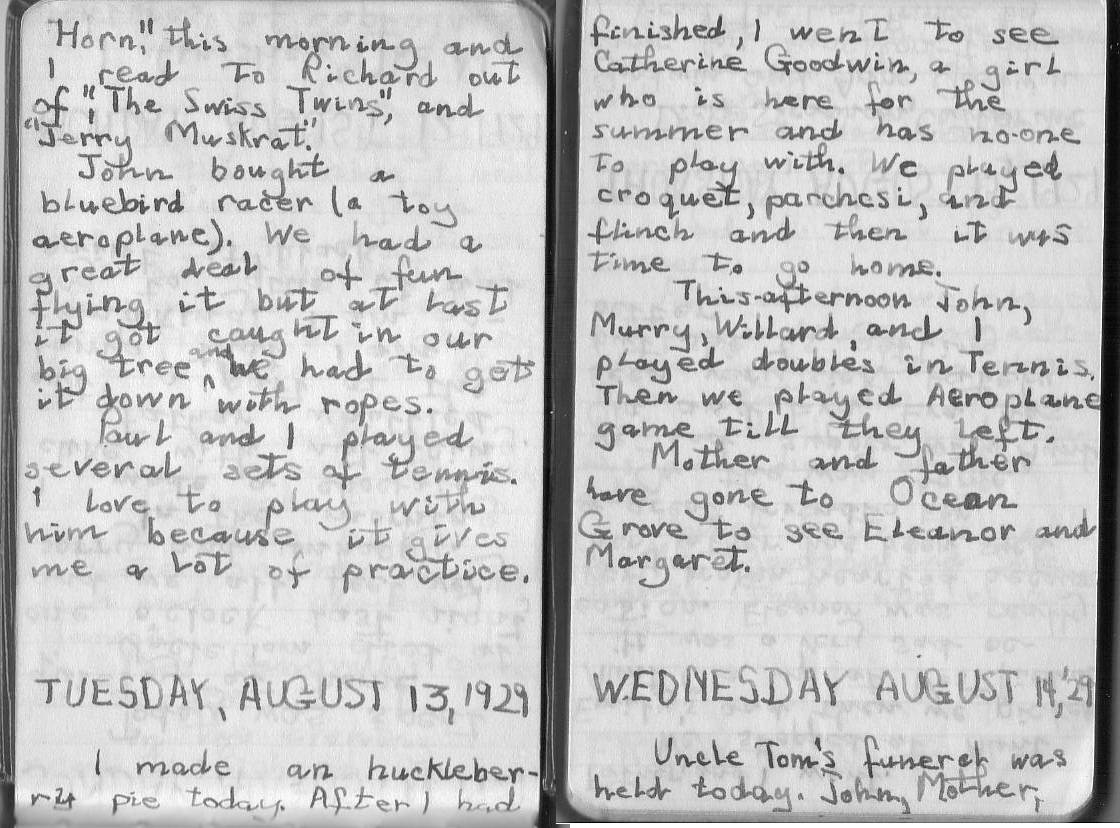 Horn," this morning and
I read to Richard out
of "The Swiss Twins", and
"Jerry Muskrat."
John bought a
bluebird racer (a toy
aeroplane). We had a
great deal of fun
flying it but at last
it got caught in our
big tree and we had to get
it down with ropes.
Paul and I played
several sets of tennis.
I love to play with
him because it gives
me a lot of practice.
TUESDAY, AUGUST 13, 1929
I made an huckleber-
ry pie today. After I had
finished, I went to see
Catherine Goodwin, a girl
who is here for the
summer and has no-one
to play with. We played
croquet, parchesi, and
flinch and then it was
time to go home.
This-afternoon John,
Murry, Willard, and I
played doubles in Tennis.
Then we played Aeroplane
game till they left.
Mother and father
have gone to Ocean
Grove to see Eleanor and
Margaret.
WEDNESDAY AUGUST 14, 29
Uncle Tom's funeral was
held today. John, Mother,